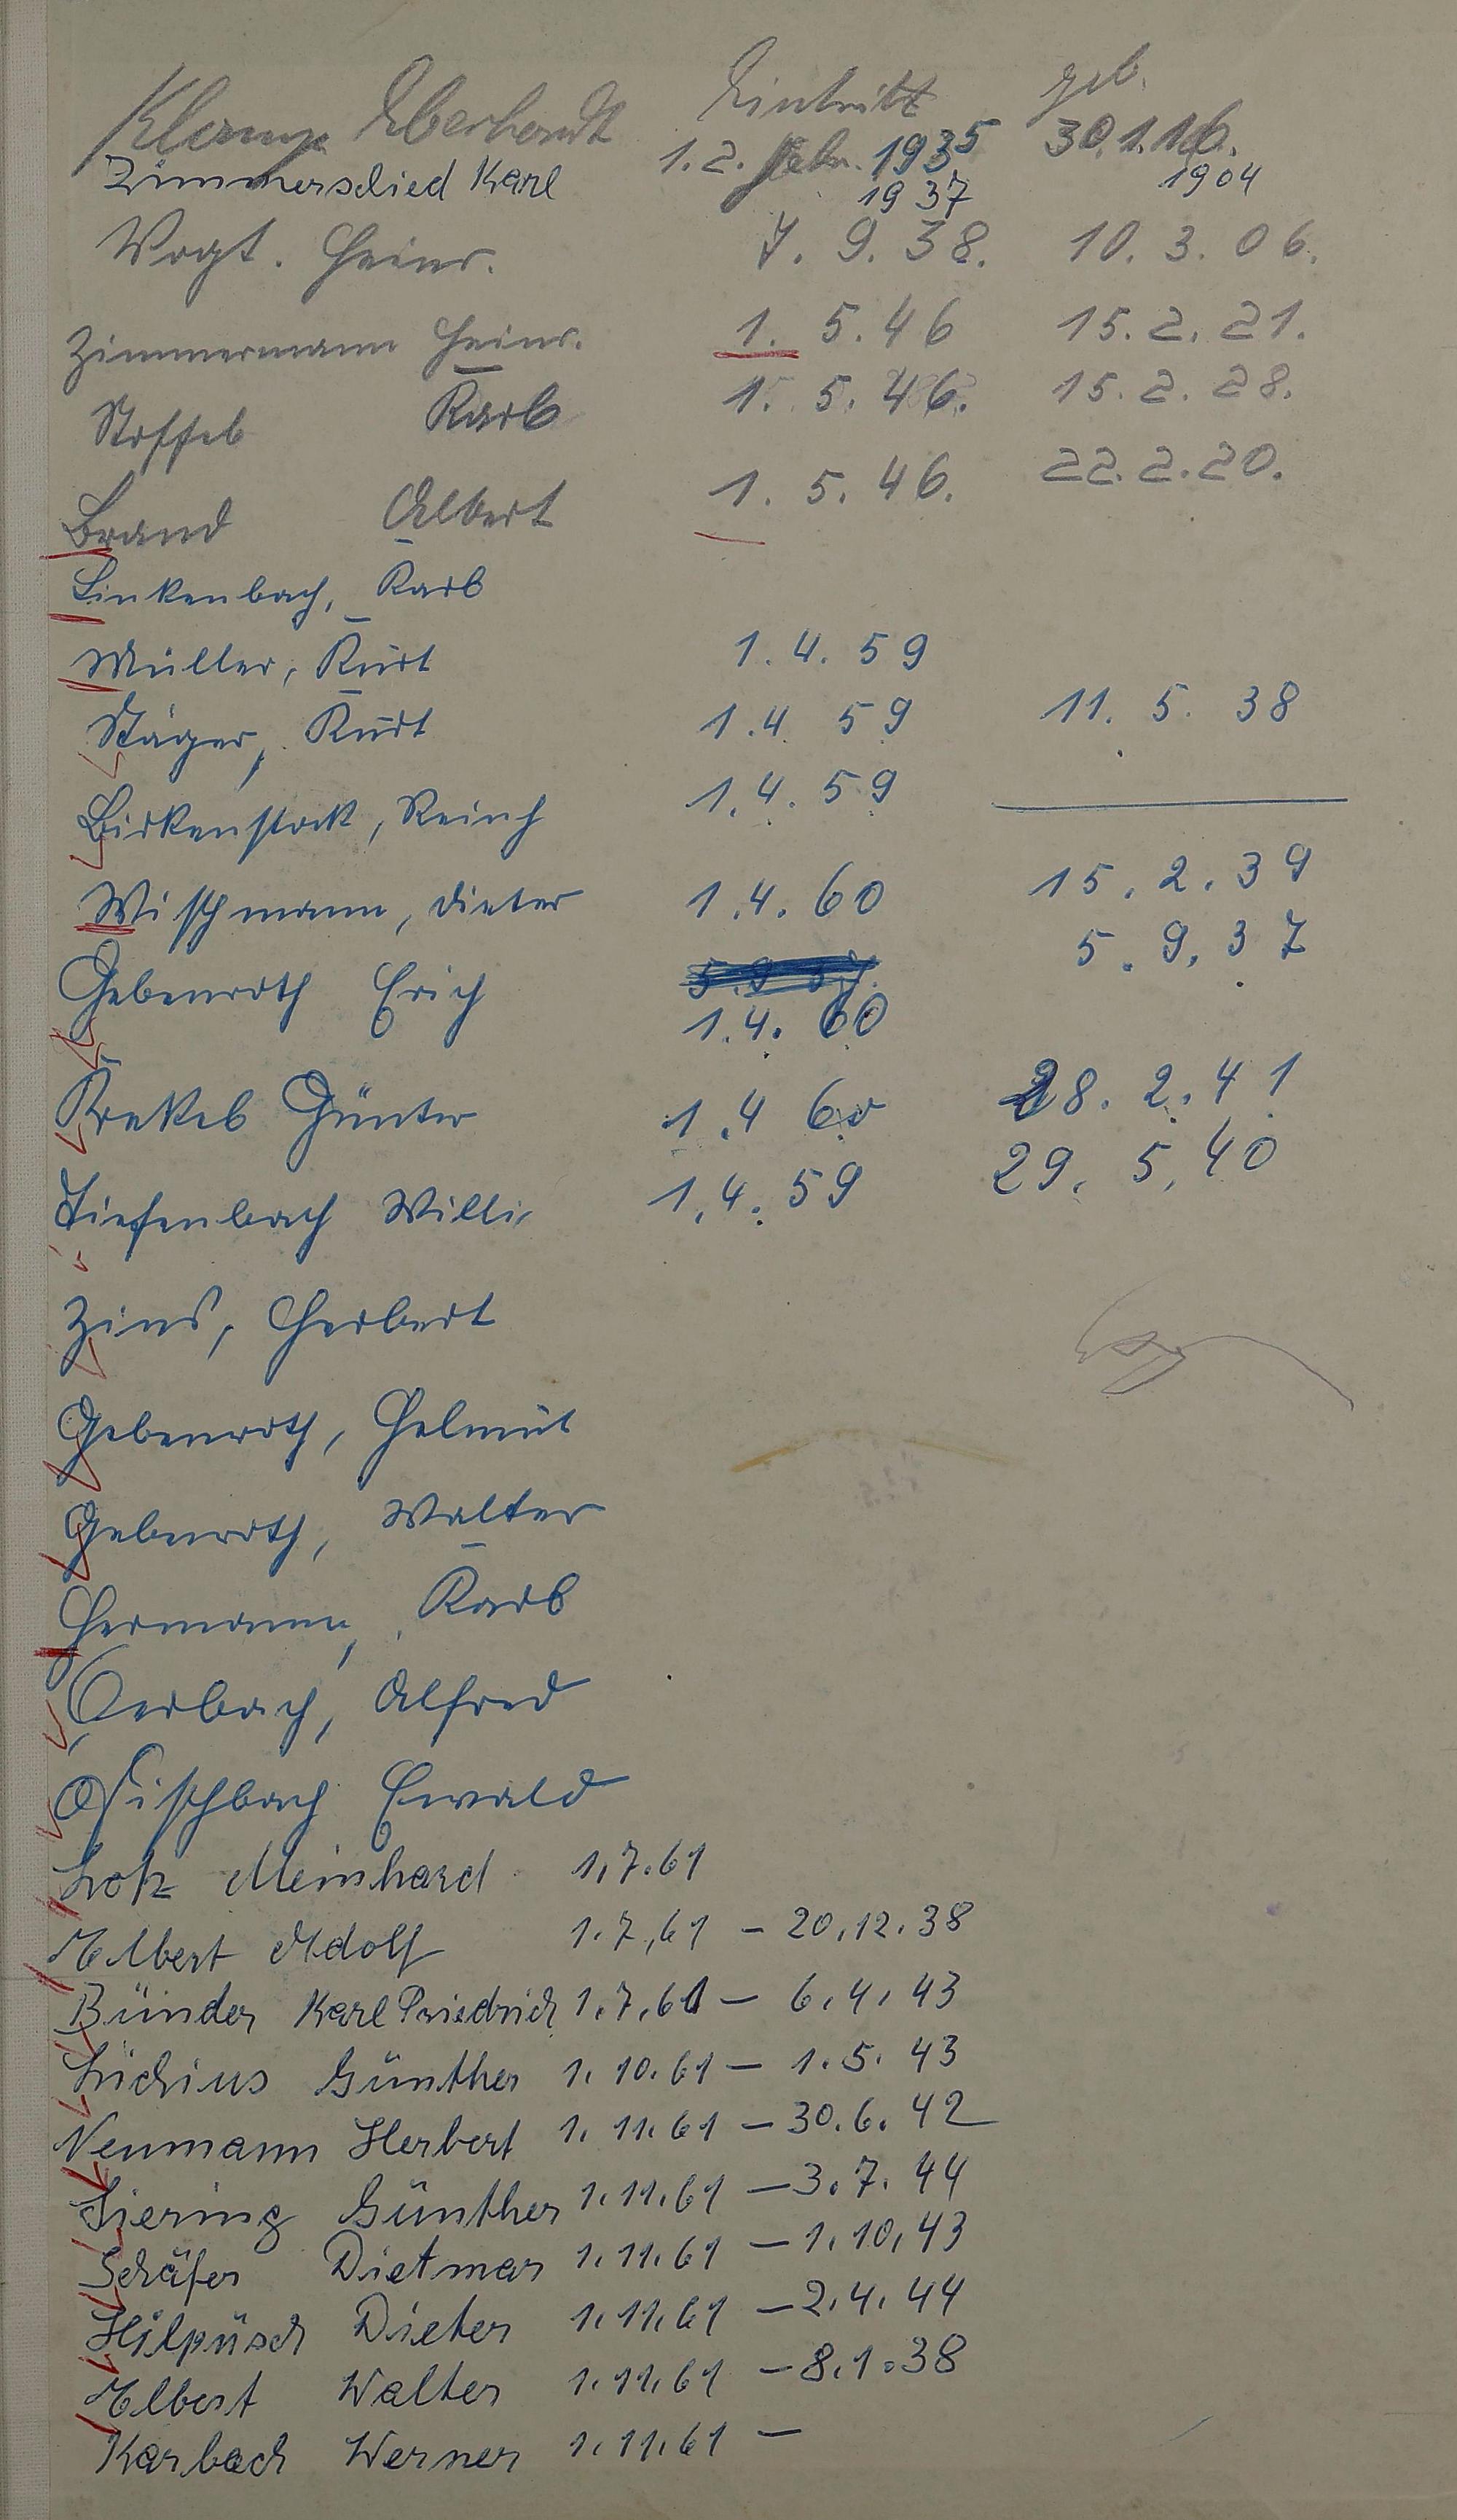 Eintritt geb.
Klamp Eberhardt 1.2. Febr. 1935 30.1.16.
Zimmerschied Karl 1937 1904
Vogt. Heinr. 7. 9. 38. 10. 3. 06.
Zimmermann Heinr. 1. 5. 46 15. 2. 21.
Stoffel Karl 1. 5. 46. 15. 2. 28.
Brand Albert 1. 5. 46. 22. 2. 20.
Linkenbach, Karl
Müller, Kurt 1. 4. 59
Stäger, Kurt 1. 4. 59 11. 5. 38
Birkenstock, Reinh 1. 4. 59
Wischmann, Dieter 1. 4. 60 15. 2. 39
Gebenroth Erich 5. 9. 37. 5. 9. 37
1. 4. 60
Krekel Günter 1. 4 60 28. 2. 41
Tiefenbach Willi 1. 4. 59 29. 5. 40
Zins, Herbert
Gebenroth, Helmut
Gebenroth, Walter
Hermann, Karl
Oerbach, Alfred
Fischbach Ewald
Lotz Meinhard 1.7.61
Elbert Adolf 1.7.61 – 20.12.38
Bünder Karl Friedrich 1.7.61 – 6.4.43
Lüdius Günther 1.10.61 – 1.5.43
Neumann Herbert 1.11.61 – 30.6.42
Siering Günther 1.11.61 – 3.7.44
Schäfer Dietmar 1.11.61 – 1.10.43
Hilpüsch Dieter 1.11.61 – 2.4.44
Elbert Walter 1.11.61 – 8.1.38
Karbach Werner 1.11.61 –